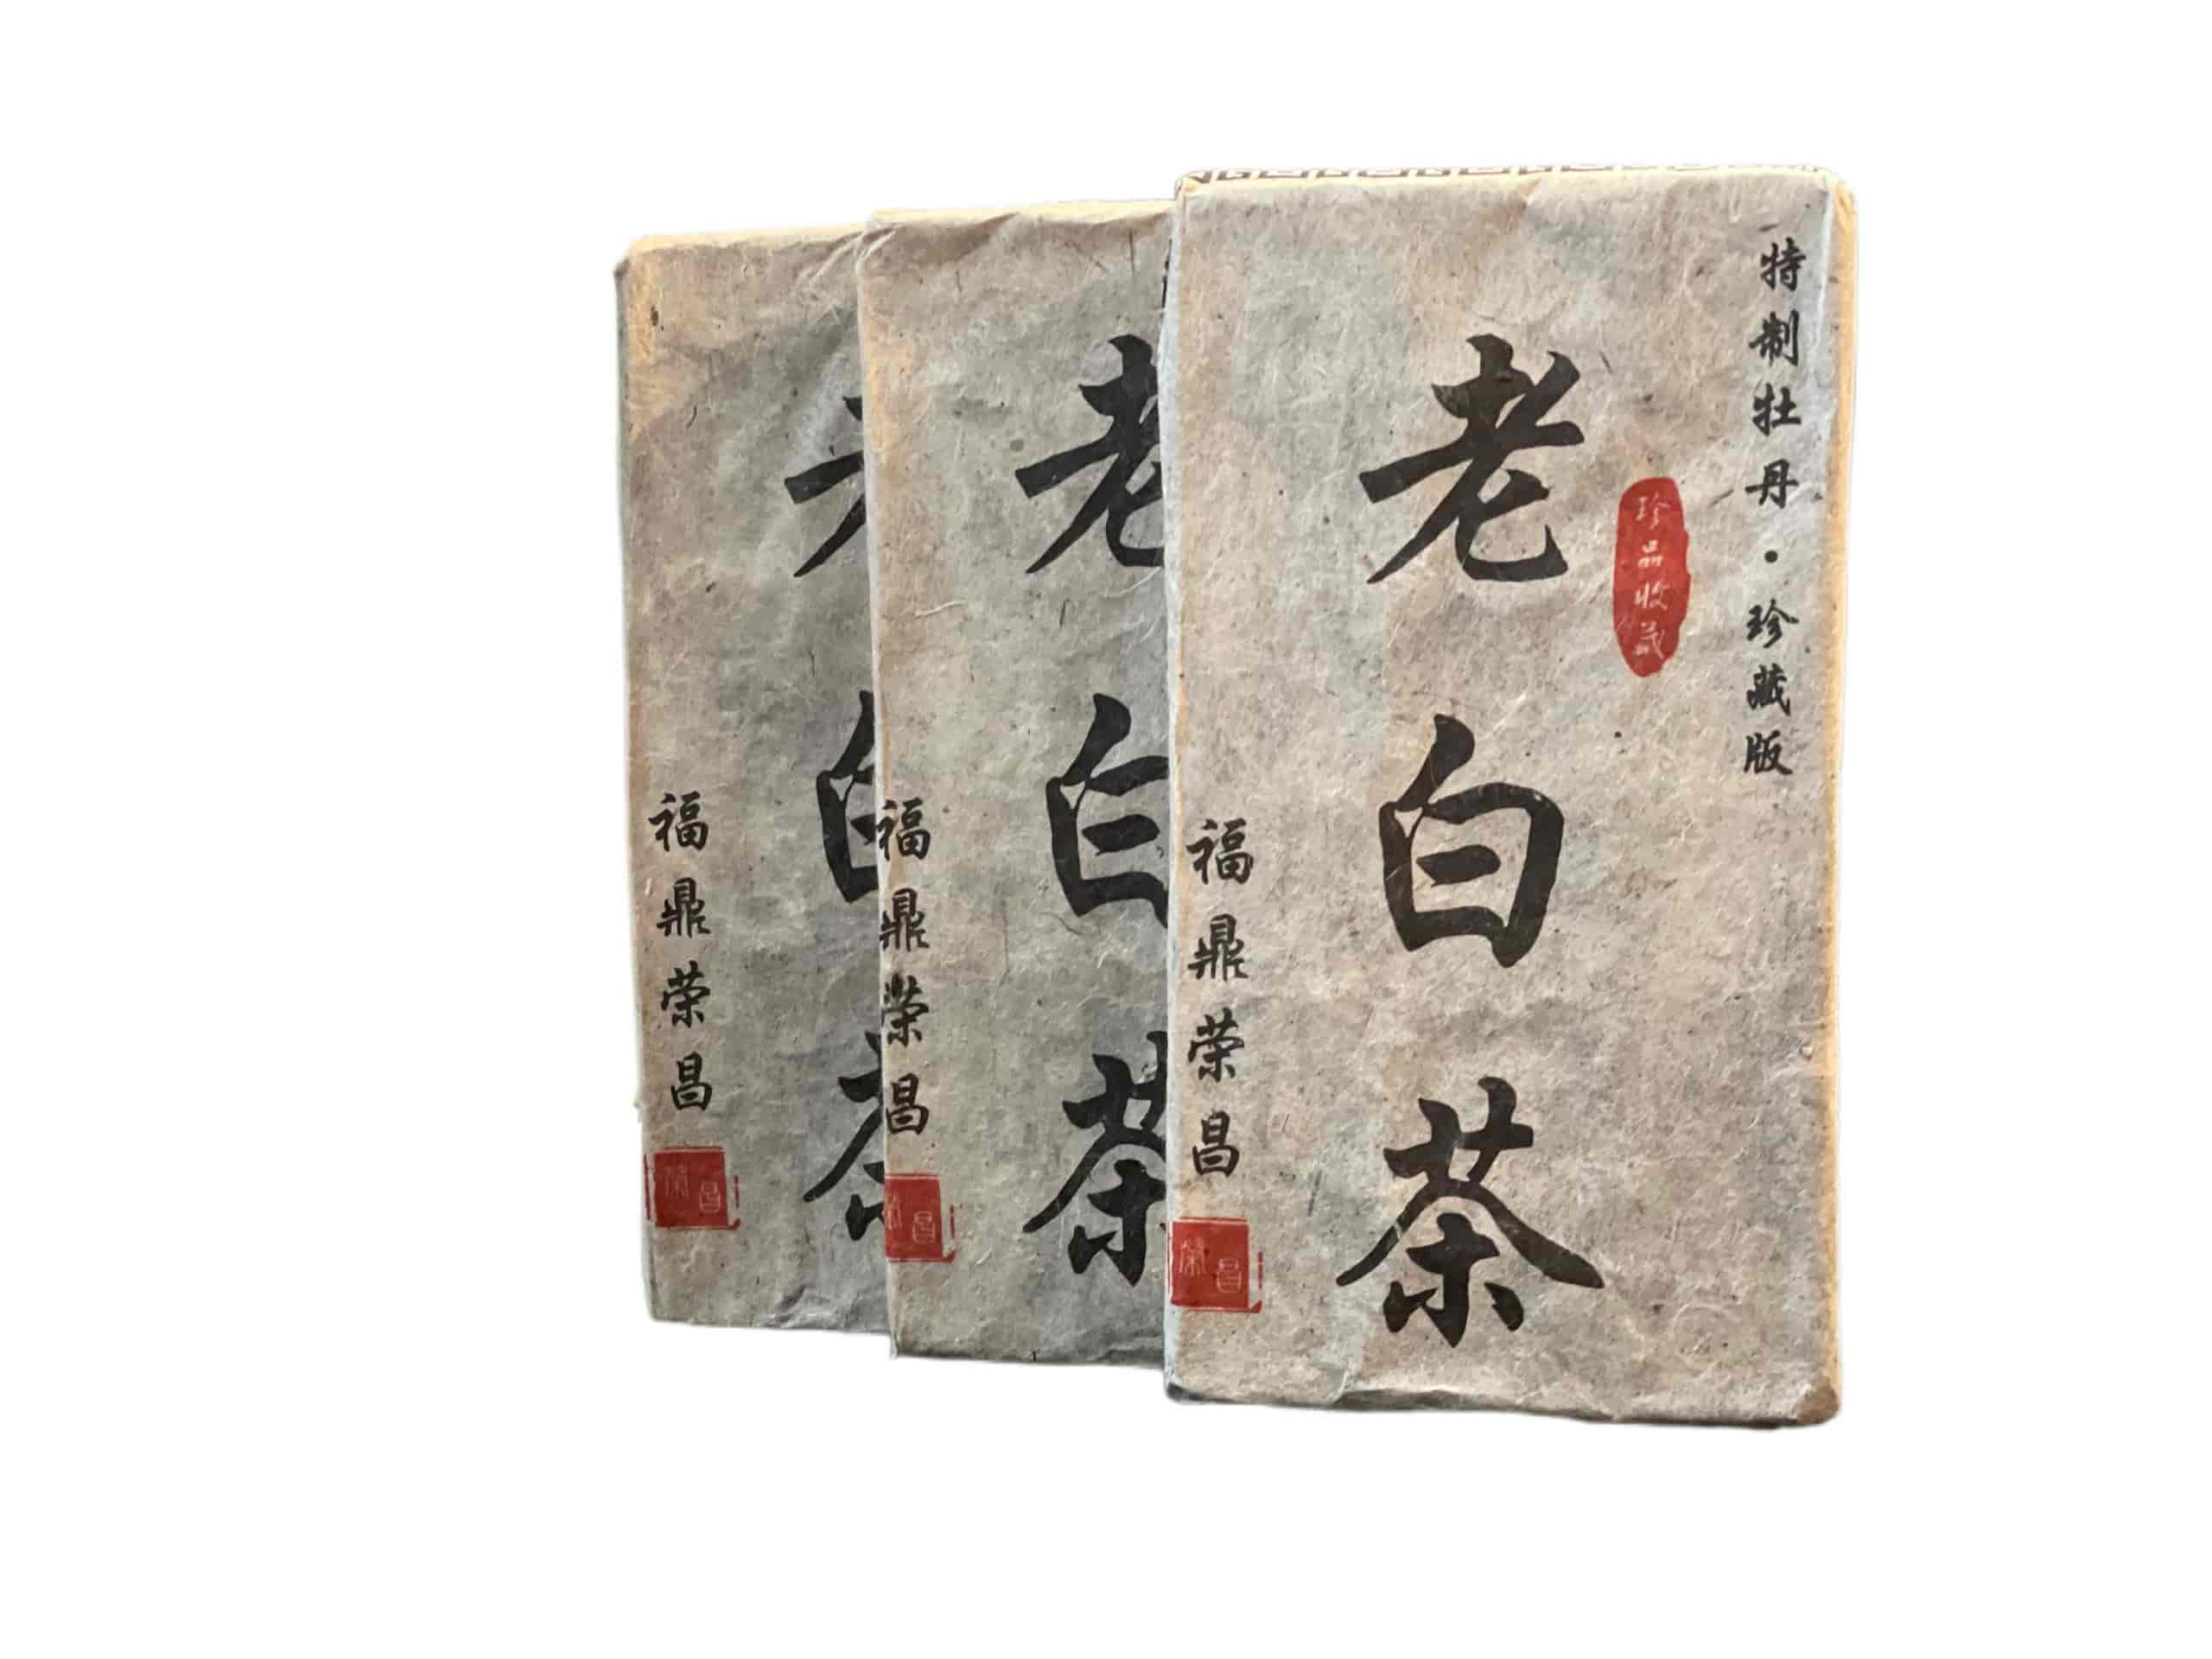 特制牡丹·珍藏版
珍品收藏
老白茶
福鼎荣昌
荣昌
老白茶
福鼎荣昌
昌
福鼎荣昌
荣昌